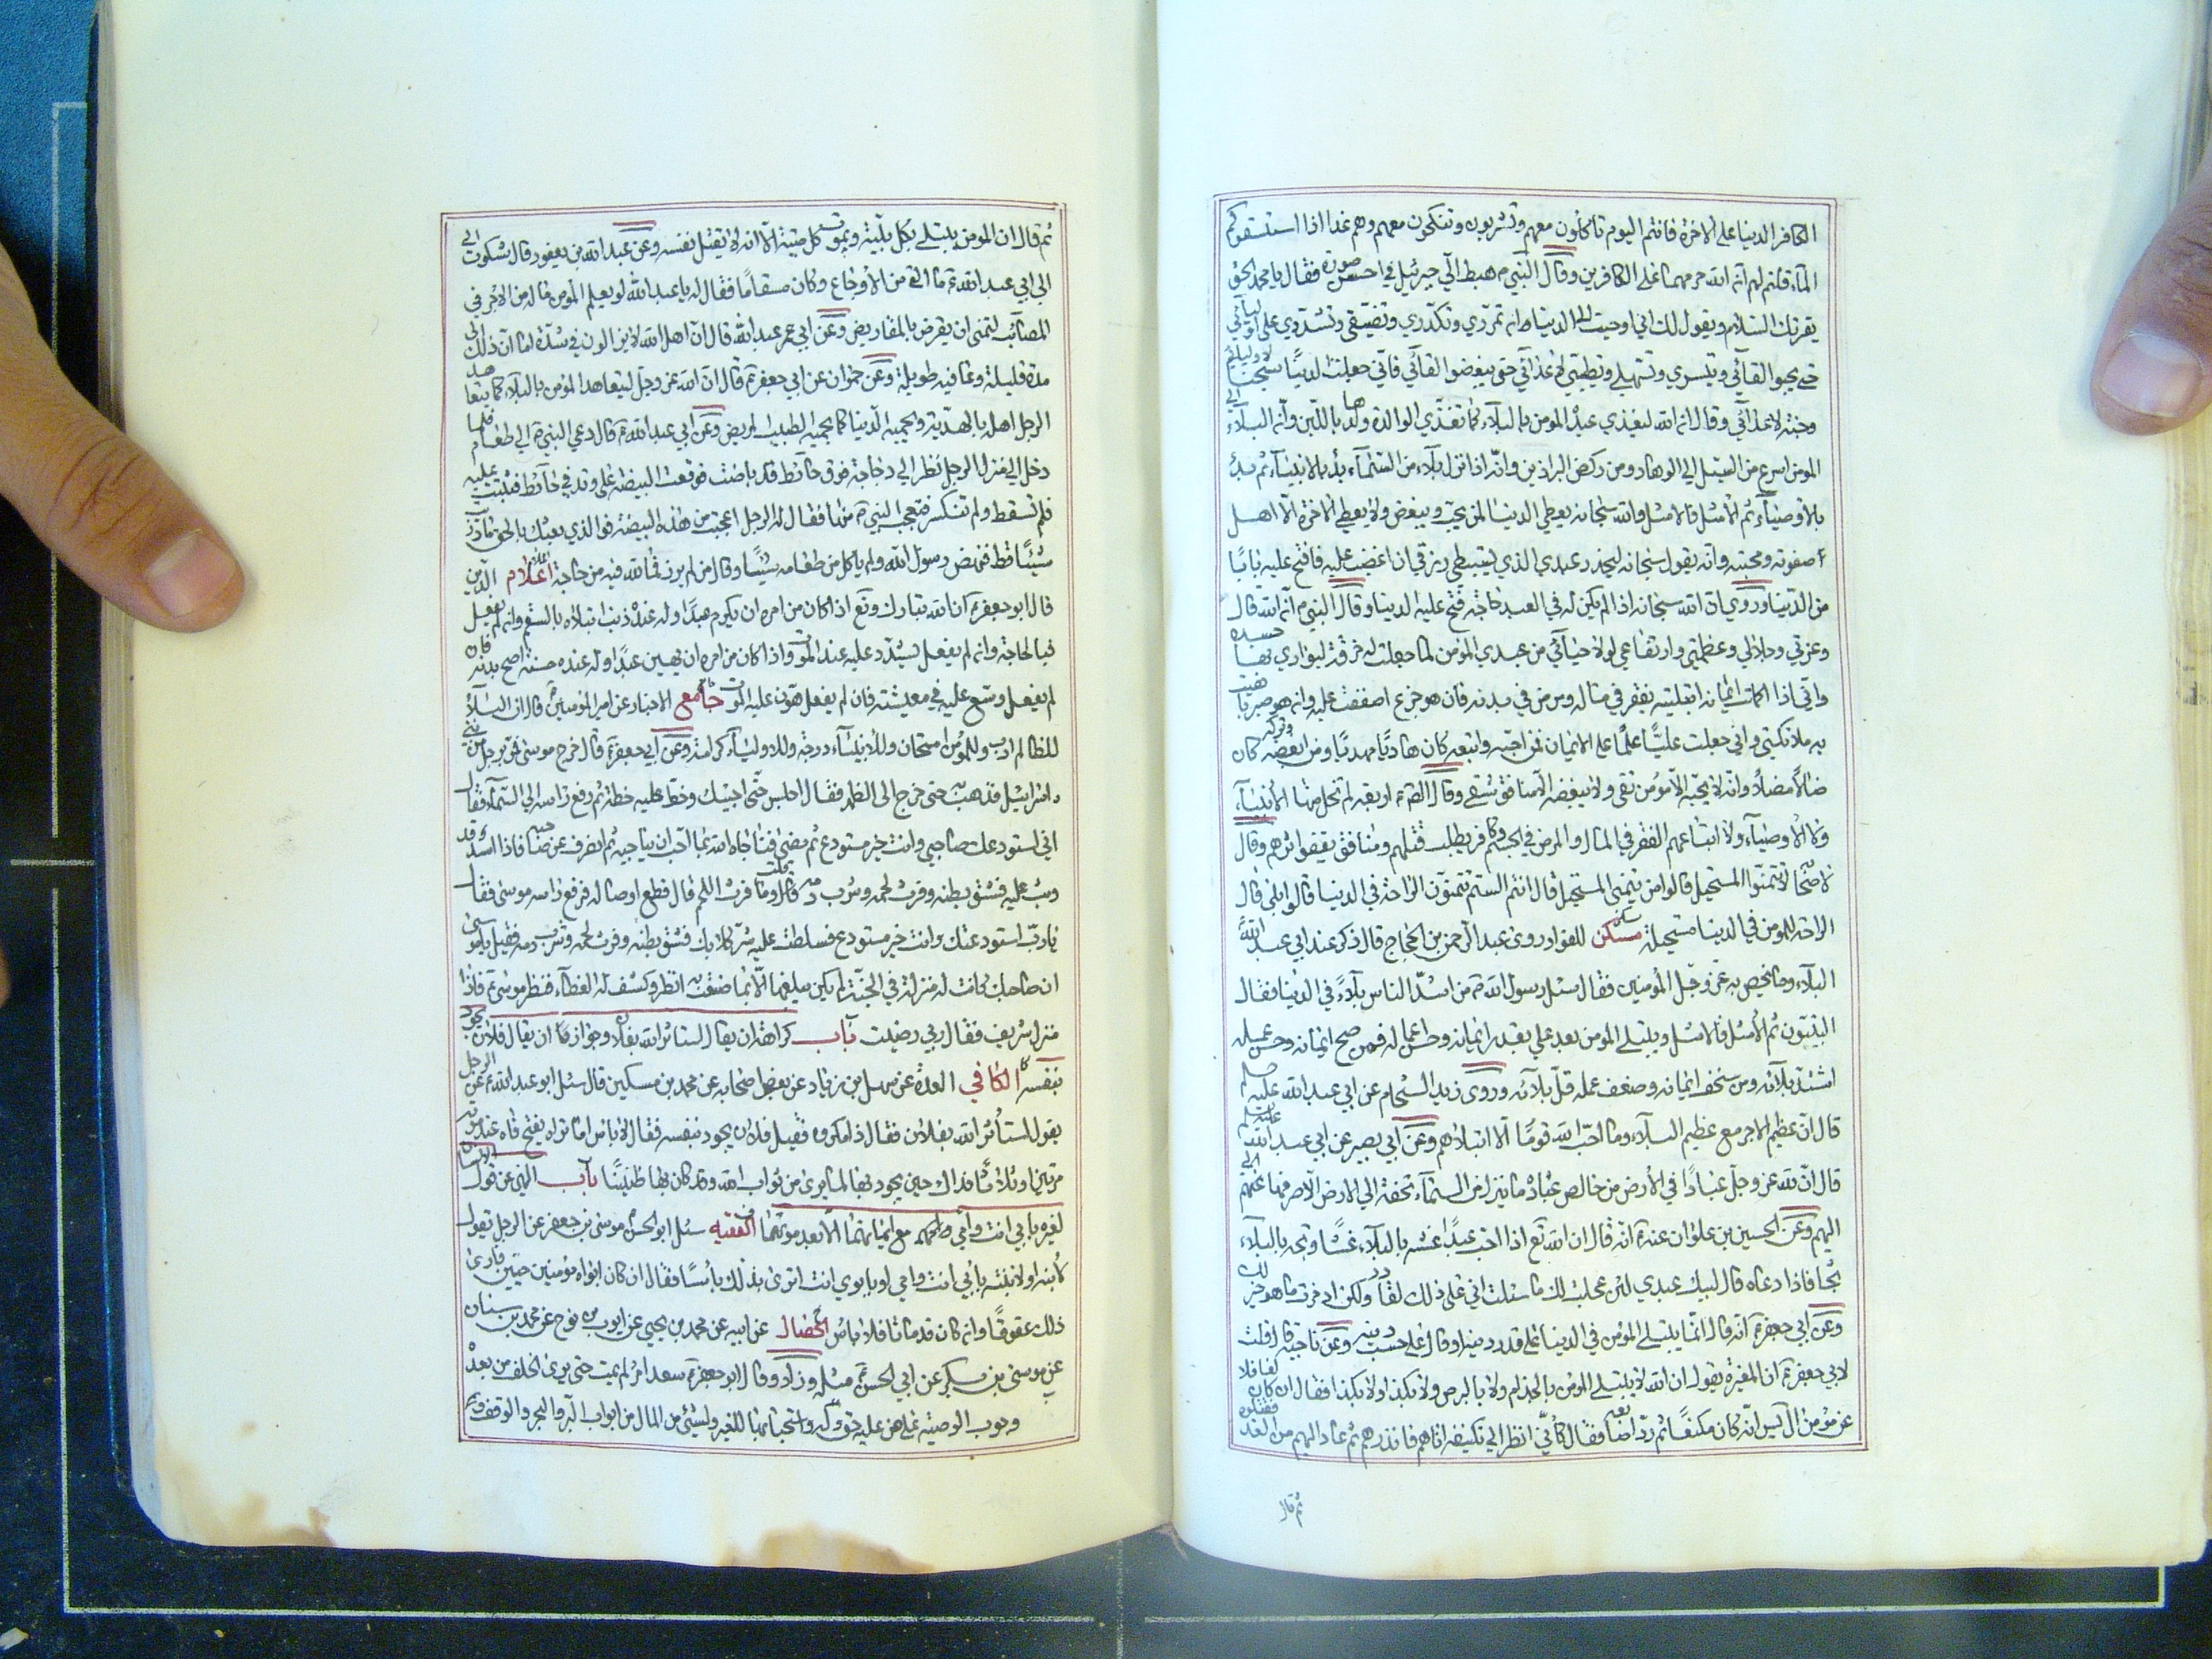 الكافر الدنيا على الاخرة فانتم اليوم تاكلون معهم وتشربون وتنكحون معهم وهم غدا اذا استسقوكم
الماء قلتم لهم ان الله حرمهما على الكافرين وقال النبي هبط الي جبرئيل في احسن صورة فقال يا محمد الحق
يقرئك السلام ويقول لك اني اوحيت الى الدنيا ان تمرري وتكدري وتضيقي وتشددي على اوليائي
حتى يحبوا لقائي وتيسري وتسهلي وتطيبي لاعدائي حتى يبغضوا لقائي فاني جعلت الدنيا سجنا لاوليائي
وجنة لاعدائي وقال ان الله ليغذي عبده المومن بالبلاء كما تغذي الوالدة ولدها باللبن وان البلاء الى
المومن اسرع من السيل الى الوهاد ومن ركض البراذين وانه اذا نزل بلاء من السماء بدء بالانبياء ثم
بالاوصياء ثم الامثل فالامثل وانه سبحانه يعطي الدنيا لمن يحب ويبغض ولا يعطي الاخرة الا اهل
صفوته ومحبته وانه يقول سبحانه ليحذر عبدي الذي يستبطي رزقي ان اغضب عليه فافتح عليه بابا
من الدنيا وروي ان الله سبحانه اذا لم يكن له في العبد حاجة فتح عليه الدنيا وقال النبي ان الله قال
وعزتي وجلالي وعظمتي وارتفاعي لولا حيائي من عبدي المومن لما جعلت له خرقة ليواري بها جسده
واني اذا اكملت ايمانه ابتليته بفقر في ماله ومرض في بدنه فان هو جزع اضعفت عليه وان هو صبر باهيت
به ملائكتي واني جعلت عليا علما على الايمان فمن احبه واتبعه كان هاديا مهديا ومن ابغضه وتركه كان
ضالا مضلا وانه لا يحبه الا مومن تقي ولا يبغضه الا منافق شقي وقال اربعة لم تخل منها الانبياء
ولا الاوصياء ولا اتباعهم الفقر في المال والمرض في الجسم وكافر يطلب قتلهم ومنافق يقفو اثرهم وقال
لاصحابه لا تتمنوا المستحيل قالوا ومن يتمنى المستحيل قال انتم الستم تتمنون الراحة في الدنيا قالوا بلى قال
الراحة للمومن في الدنيا مستحيلة مسكن الفواد روى عبد الرحمن بن الحجاج قال ذكر عند ابي عبد الله
البلاء وما يخص به عز وجل المؤمنين فقال سئل رسول الله من اشد الناس بلاء في الدنيا فقال
النبيون ثم الامثل فالامثل ويبتلى المومن بعد على بقدر ايمانه وحسن اعماله فمن صح ايمانه وحسن عمله
اشتد بلاؤه ومن سخف ايمانه وضعف عمله قل بلاؤه وروى زيد الشحام عن ابي عبد الله عليه السلام
قال ان عظيم الاجر مع عظيم البلاء وما احب الله قوما الا ابتلاهم وعن ابي بصير عن ابي عبد الله عليه السلام
قال ان لله عز وجل عبادا في الارض من خالص عباده ما ينزل من السماء تحفة الى الارض الا صرفها عنهم الى
اليهم وعن الحسين بن علوان عنه انه قال ان الله تع اذا احب عبدا غثه بالبلاء غثا وثجه بالبلاء
ثجا فاذا دعاه قال لبيك عبدي لئن عجلت لك ما سئلت اني على ذلك لقادر ولكن ادخرت ما هو خير لك
وعن ابي جعفر انه قال انما يبتلى المؤمن في الدنيا على قدر دينه او قال على حسب دينه وعن ناجية قال قلت
لابي جعفر ان المغيرة يقول ان الله لا يبتلي المؤمن بالجذام ولا بالبرص ولا بكذا ولا بكذا فقال ان كان لغافلا
عن مؤمن ال يس انه كان مكنعا ثم رد اصابعه فقال كاني انظر الى تكنيعه اتاهم فانذرهم ثم عاد اليهم من الغد فقتلوه
ثم قال
ثم قال ان المومن يبتلى بكل بلية ويموت كل ميتة الا انه لا يقتل نفسه وعن عبد الله بن يعفور قال شكوت
الى ابي عبد الله ما القى من الاوجاع وكان مسقاما فقال له يا عبد الله لو يعلم المؤمن ما له من الاجر في
المصائب لتمنى ان يقرض بالمقاريض وعن ابي عمر عبد الله قال ان اهل الله لا يزالون في شدة اما ان ذلك الى
مدة قليلة وعافية طويلة وعن حمران عن ابي جعفر قال ان الله عز وجل ليتعاهد المؤمن بالبلاء كما يتعاهد
الرجل اهله بالهدية ويحميه الدنيا كما يحمي الطبيب المريض وعن ابي عبد الله قال دعي النبي الى طعام فلما
دخل الى منزل الرجل نظر الى دجاجة فوق حائط قد باضت فوقعت البيضة على وتد في حائط فثبتت عليه
فلم تسقط ولم تنكسر فتعجب النبي منها فقال له الرجل اعجبت من هذه البيضة فوالذي بعثك بالحق ما رزئت
شيئا قط فنهض رسول الله ولم ياكل من طعامه شيئا وقال من لم يرزء فما لله فيه من حاجة اعلام الدين
قال ابو جعفر ان الله تبارك وتع اذا كان من امره ان يكرم عبدا وله عنده ذنب ابتلاه بالسقم وان لم يفعل
فبالحاجة وان لم يفعل شدد عليه عند الموت واذا كان من امره ان يهين عبدا وله عنده حسنة اصح بدنه فان
لم يفعل وسع عليه في معيشته فان لم يفعل هون عليه الموت جامع الاخبار عن امير المؤمنين قال ان البلاء
للظالم ادب وللمؤمن امتحان وللانبياء درجة وللاولياء كرامة وعن ابي جعفر قال خرج موسى فمر برجل من بني
اسرائيل فذهب به حتى خرج الى الظهر فقال اجلس حتى اجيئك وخط عليه خطة ثم رفع راسه الى السماء فقال
اني استودعك صاحبي وانت خير مستودع ثم مضى فناجاه الله بما احب ان يناجيه ثم انصرف نحو صاحبه فاذا اسد قد
وثب عليه فشق بطنه وفرث لحمه وشرب دمه قلت وما فرث اللحم قال قطع اوصاله فرفع راسه موسى فقال
يا رب استودعتك وانت خير مستودع فسلطت عليه شر كلابك فشق بطنه وفرث لحمه وشرب دمه فقيل يا موسى
ان صاحبك كانت له منزلة في الجنة لم يكن يبلغها الا بما صنعت به انظر وكشف له الغطاء فنظر موسى فاذا
منزل شريف فقال رب رضيت باب كراهة ان يقال استاثر الله بفلان وجواز ان يقال فلان يجود
بنفسه الكافي العدة عن سهل بن زياد عن بعض اصحابه عن محمد بن مسكين قال سئل ابو عبد الله عن الرجل
يقول استاثر الله بفلان فقال ذا مكروه فقيل فلان يجود بنفسه فقال لا باس اما تراه يفتح فاه عند موته
مرتين او ثلاثا فذاك حين يجود بها لما يرى من ثواب الله وقد كان بها ظنينا باب النهي عن قول الانسان
لغيره بابي انت وامي مع ايمانهما الا بعد موتهما الفقيه سئل ابو الحسن موسى بن جعفر عن الرجل يقول
لابنه او لابنته بابي انت وامي او بابوي انت اترى بذلك باسا فقال ان كان ابواه مؤمنين حيين فارى
ذلك عقوقا وان كان قد ماتا فلا باس الخصال عن ابيه عن محمد بن يحيى عن ايوب بن نوح عن محمد بن سنان
عن موسى بن بكر عن ابي الحسن مثله وزاد وقال ابو جعفر سعد امرؤ لم يمت حتى يرى الخلف من بعده
وجوب الوصية على من عليه حق او له واستحبابها للغير ولشئ من المال من ابواب البر والخير والوقف